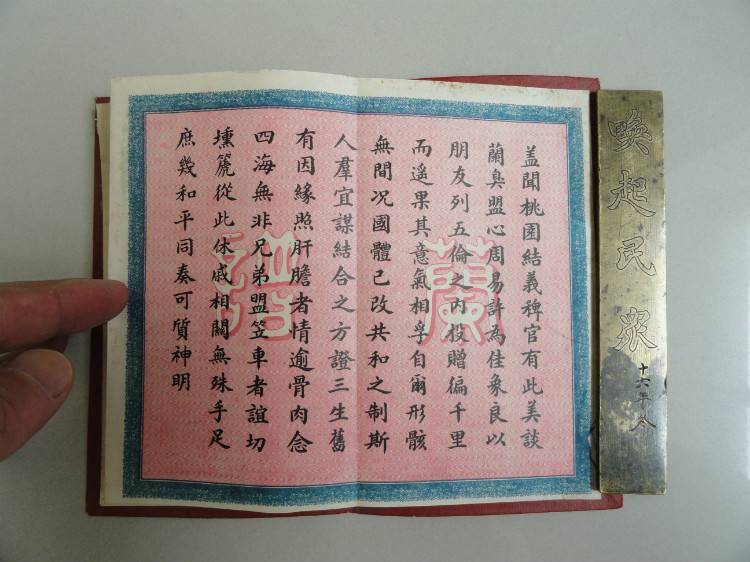 蓋聞桃園結義稗官有此美談
蘭臭盟心周易許為佳象良以
朋友列五倫之内投贈徧千里
而遙果其意氣相孚自爾形骸
無間况國體已改共和之制斯
人羣宜謀結合之方證三生舊
有因緣照肝膽者情逾骨肉念
四海無非兄弟盟笠車者誼切
壎篪從此休戚相關無殊手足
庶幾和平同奏可質神明
蘭譜
喚起民眾
十六年